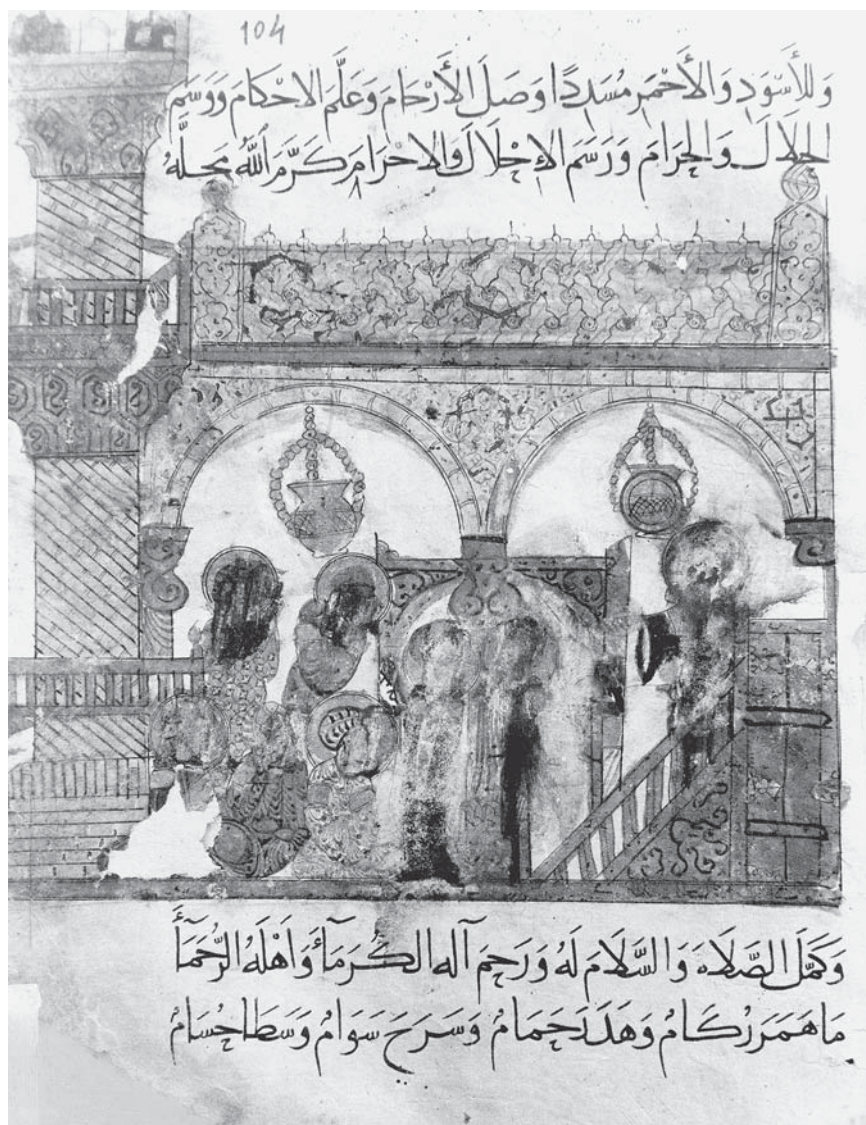 104
وَلِلأَسْوَدِ وَالأَحْمَرِ مُسَدِّدًا وَصَلَ الأَرْحَامَ وَعَلَّمَ الاحْكَامَ وَوَسَمَ
الحَلَالَ وَالحَرَامَ وَرَسَمَ الإِحْلَالَ وَالاحْرَامَ كَرَّمَ اللّٰهُ مَحلَّهُ
وَكَمَّلَ الصَّلَاةَ وَالسَّلَامَ لَهُ وَرَحِمَ آلَهُ الكُرَمَآءَ وَاَهْلَهُ الرُّحَمَآءَ
مَا هَمَرَ رُكَامُ وَهَدَرَ حَمَامُ وَسَرَحَ سَوَامُ وَسَطَا حُسَامُ